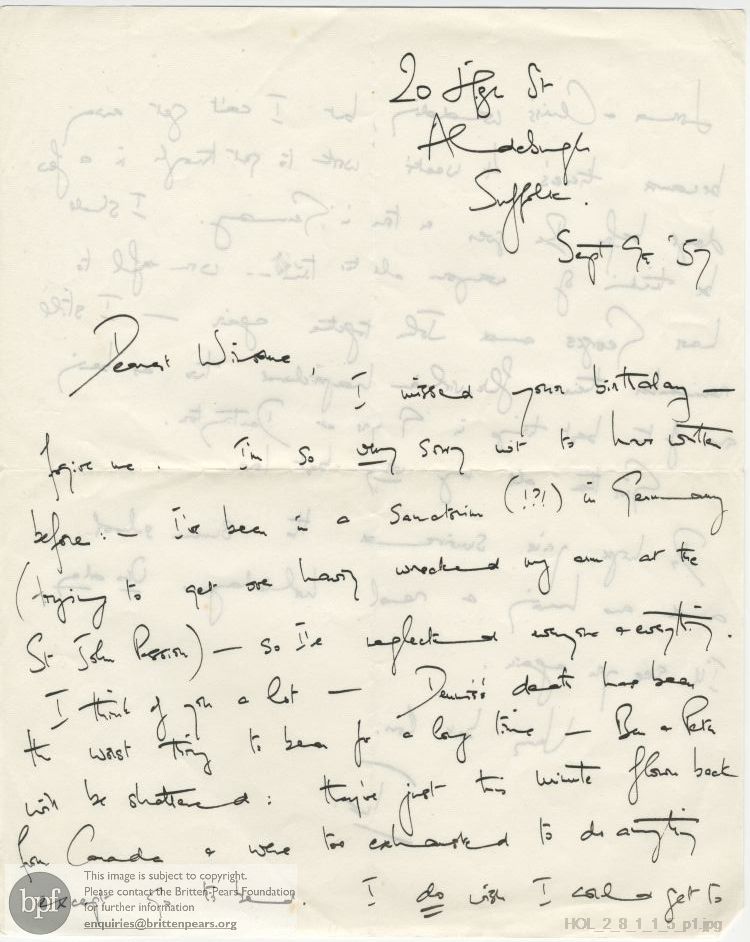 20 High St
Aldeburgh
Suffolk.
Sept 9th '57
Dearest Winsome,
I missed your birthday —
forgive me. I'm so very sorry not to have written
before: — I've been in a Sanatorium (!?!) in Germany
(trying to get over having wrecked my arm at the
St John Passion) — so I've neglected everyone & everything.
I think of you a lot — Dennis's death has been
the worst thing to bear for a long time — Ben & Peter
will be shattered: they've just this minute flown back
from Canada & were too exhausted to do anything
except go to bed. I do wish I could get to
bpf
This image is subject to copyright.
Please contact the Britten-Pears Foundation
for further information
enquiries@brittenpears.org
HOL_2_8_1_1_5_p1.jpg